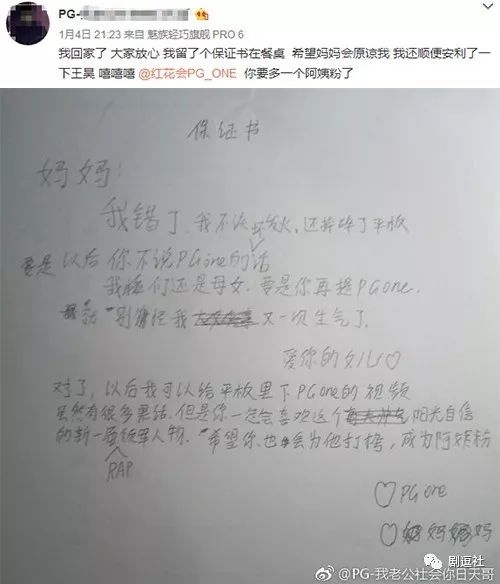 PG-
1月4日 21:23 来自 魅族轻巧旗舰 PRO 6
我回家了 大家放心 我留了个保证书在餐桌 希望妈妈会原谅我 我还顺便安利了一
下王昊 嘻嘻嘻 @红花会PG_ONE 你要多一个阿姨粉了
保证书
妈妈:
我错了,我不该发火,还摔碎了平板
要是以后你不说PGone的话
我们还是母女.要是你再提PGone.
别怪我又一次生气了.
爱你的女儿♡
对了,以后我可以给平板里下PGone的视频
虽然有很多黑话.但是你一定会喜欢这个阳光自信
的新一届领军人物."希望你也会为他打榜,成为阿姨粉
RAP
♡PGone
♡妈妈
@PG-我老公社会你日天哥
剧逗社